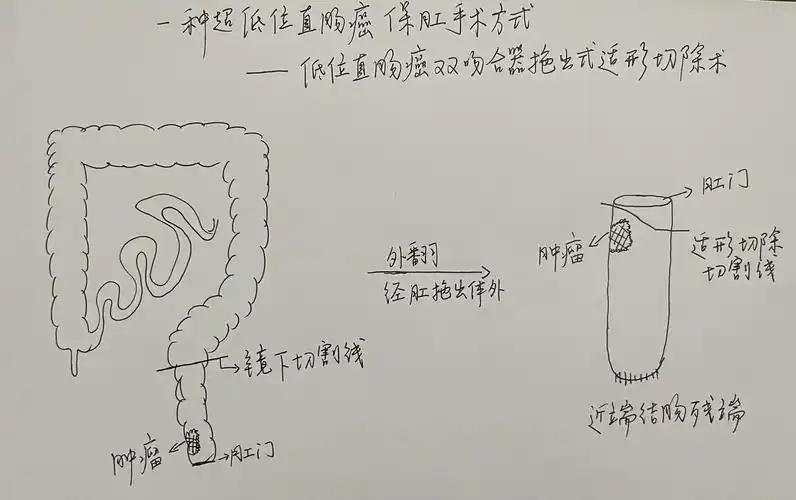 一种超低位直肠癌保肛手术方式
—— 低位直肠癌双吻合器拖出式适形切除术
肛门
肿瘤
适形切除
切割线
外翻
经肛拖出体外
镜下切割线
近端结肠残端
肿瘤
肛门